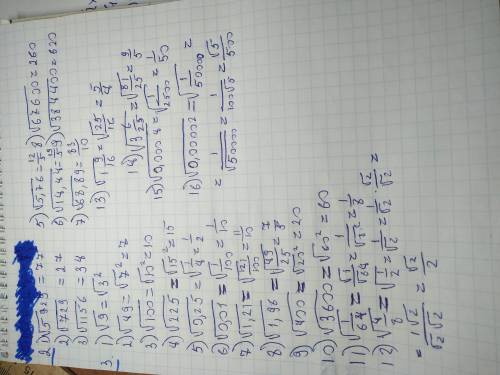 2. 1) √5929 = 77
2) √729 = 27
3) √1156 = 34
3. 1) √9 = √3²
2) √49 = √7² = 7
3) √100 = √10² = 10
4) √225 = √15² = 15
5) √0,25 = √1/4 = 1/2
6) √0,01 = √1/100 = 1/10
7) √1,21 = √121/100 = 11/10
8) √1,96 = √49/25 = 7/5
9) √400 = √20² = 20
10) √3600 = √60² = 60
11) √1/64 = √1/√64 = 1/√8² = 1/8
12) √4/8 = √1/2 = 1/√2 = 1/√2 · √2/√2 =
= 1√2/√2√2 = √2/2
5) √5,76 = 12/5
6) √14,44 = 19/5
7) √68,89 = 83/10
8) √67600 = 260
9) √384400 = 620
13) √1 9/16 = √25/16 = 5/4
14) √3 6/25 = √81/25 = 9/5
15) √0,0004 = √1/2500 = 1/50
16) √0,00002 = √1/50000 =
= 1/√50000 = 1/100√5 = √5/500